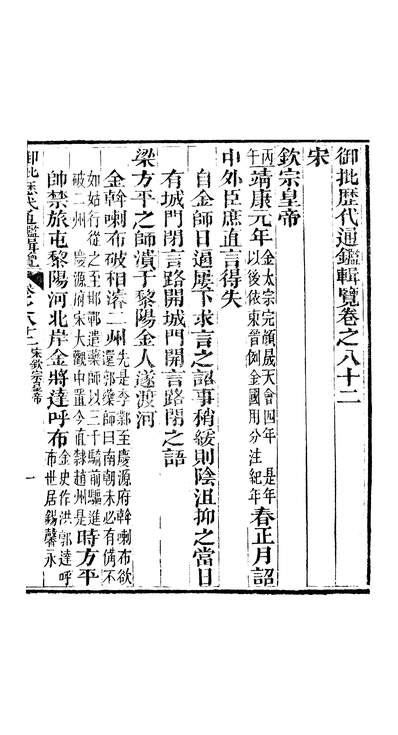 御批歷代通鑑輯覽卷之八十二
宋
欽宗皇帝
丙午靖康元年金太宗完顏晟天會四年 是年以後依東晉例金國用分注紀年春正月詔
中外臣庶直言得失
自金師日逼屢下求言之詔事稍緩則陰沮抑之當日
有城門閉言路開城門開言路閉之語
梁方平之師潰于黎陽金人遂渡河
金斡喇布破相濬二州先是李鄴至慶源府斡喇布欲還郭藥師曰南朝未必有備不如姑行從之至邯鄲遣藥師以三千騎前驅進破二州 慶源府宋大觀中置今直隸趙州是時方平
帥禁旅屯黎陽河北岸金將達呼布金史作洪郭達呼布世居錫馨永
御批歷代通鑑輯覽 卷之八十二 宋欽宗皇帝 一